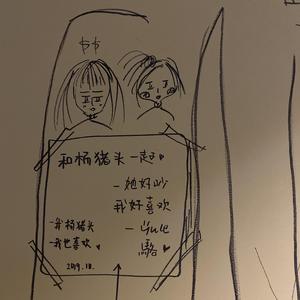 和杨猪头一起♥
-她好吵
我好喜欢
-yue
-我杨猪头
骆♥
-我也喜欢♥
2019.10.